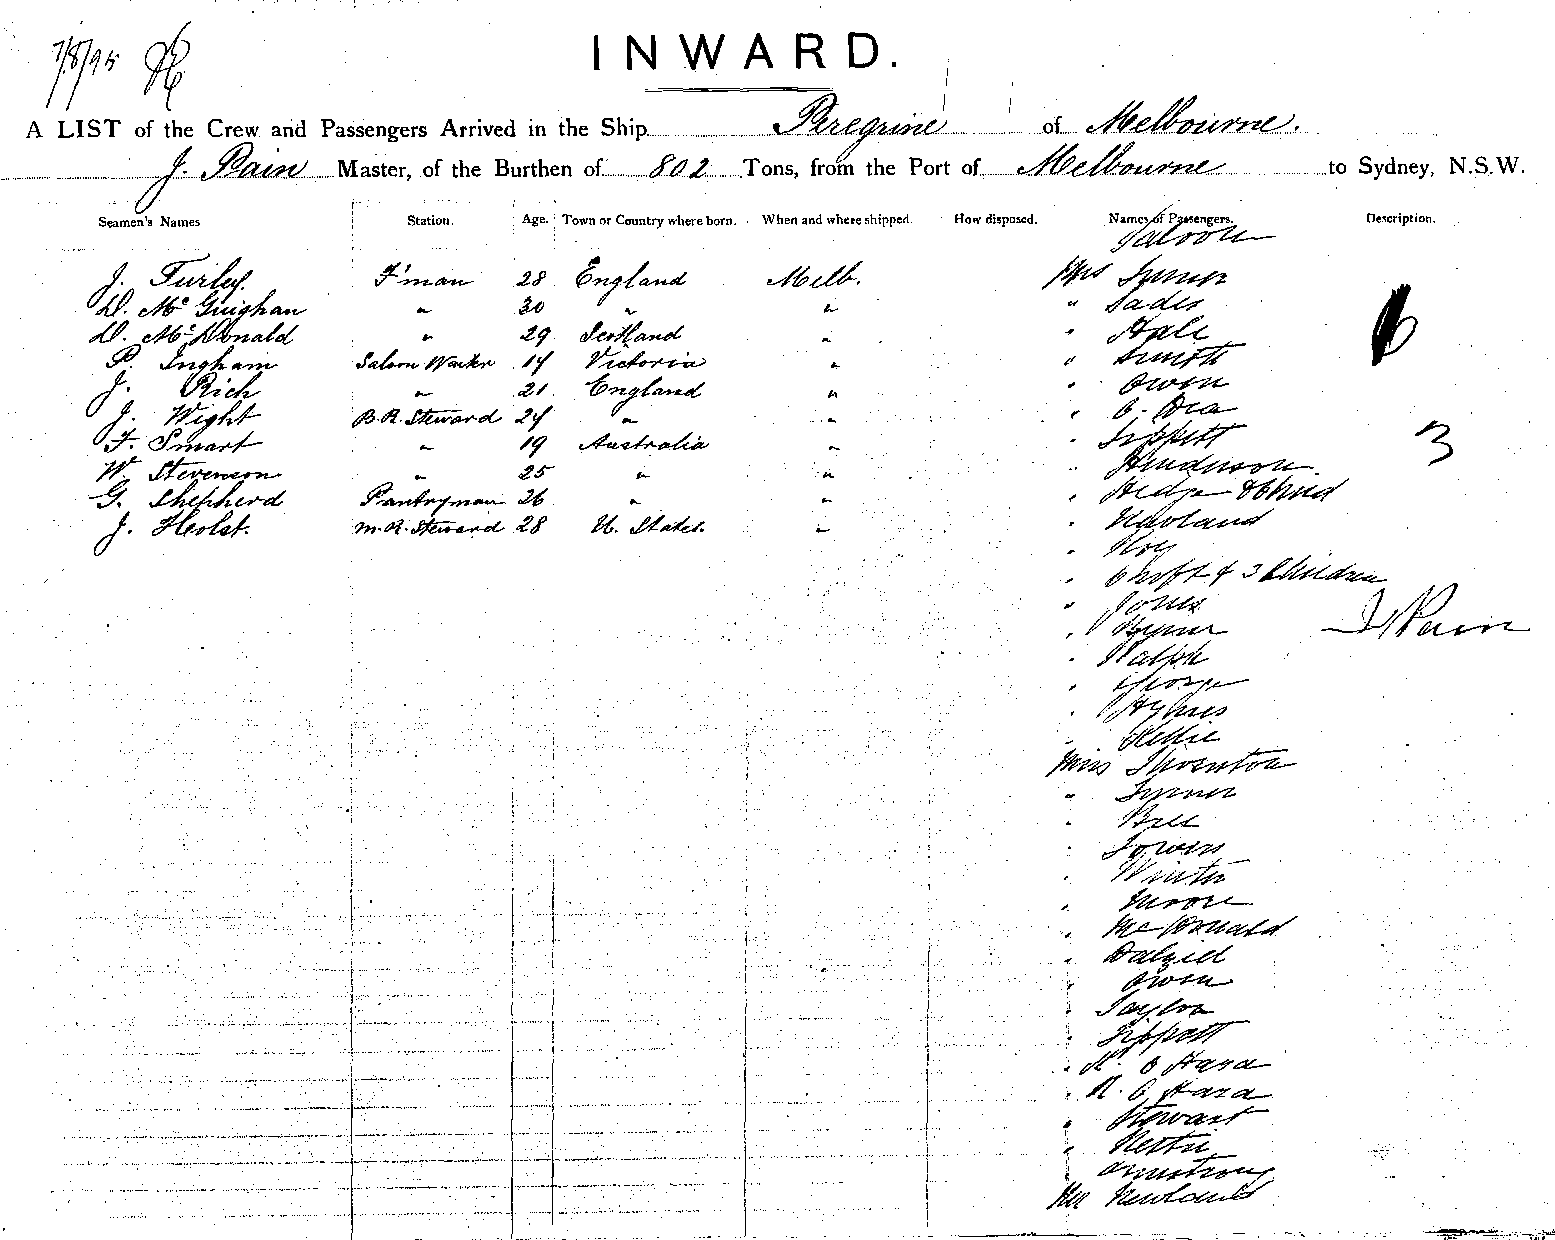 7/8/95
INWARD.
A LIST of the Crew and Passengers Arrived in the Ship Peregrine of Melbourne.
J. Pain Master, of the Burthen of 802 Tons, from the Port of Melbourne to Sydney, N.S.W.
Seamen's Names Station. Age. Town or Country where born. When and where shipped. How disposed. Names of Passengers. Description.
Saloon
J. Turley. F'man 28 England Melb. Mrs
D. McGuighan " 30 " " "
D. McDonald " 29 Scotland " " Hale
P. Ingham Saloon Waiter 14 Victoria " " Smith
J. Rich " 21 England " " Owen
J. Wight B.R. Steward 24 " " " O. Dea
F. Smart " 19 Australia " " Tippett
W. Stevenson " 25 " " " Henderson
G. Shepherd Pantryman 26 " " " Hedge & Child
J. Holst. M.R. Steward 28 U. States. " " Rowland
" Roy
" & 3 Children
" Jones
"
" Ralph
" George
" Hymes
" Kellie
J Pain
Miss Thornton
" Turner
" Bell
" Towers
" Winter
" Moore
" McDonald
" Dalziel
" Owen
" Taylor
" Tippett
" K. O Hara
" R. O Hara
" Stewart
"
" Armstrong
Mr Newlands